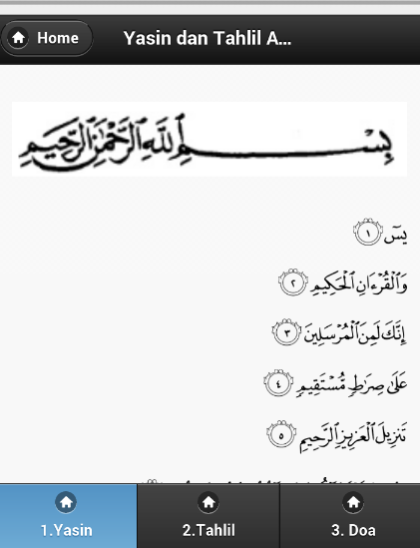 Home
Yasin dan Tahlil A...
بِسْمِ ٱللَّهِ ٱلرَّحْمَٰنِ ٱلرَّحِيمِ
يسٓ ١
وَٱلْقُرْءَانِ ٱلْحَكِيمِ ٢
إِنَّكَ لَمِنَ ٱلْمُرْسَلِينَ ٣
عَلَىٰ صِرَٰطٍ مُّسْتَقِيمٍ ٤
تَنزِيلَ ٱلْعَزِيزِ ٱلرَّحِيمِ ٥
1.Yasin
2.Tahlil
3. Doa